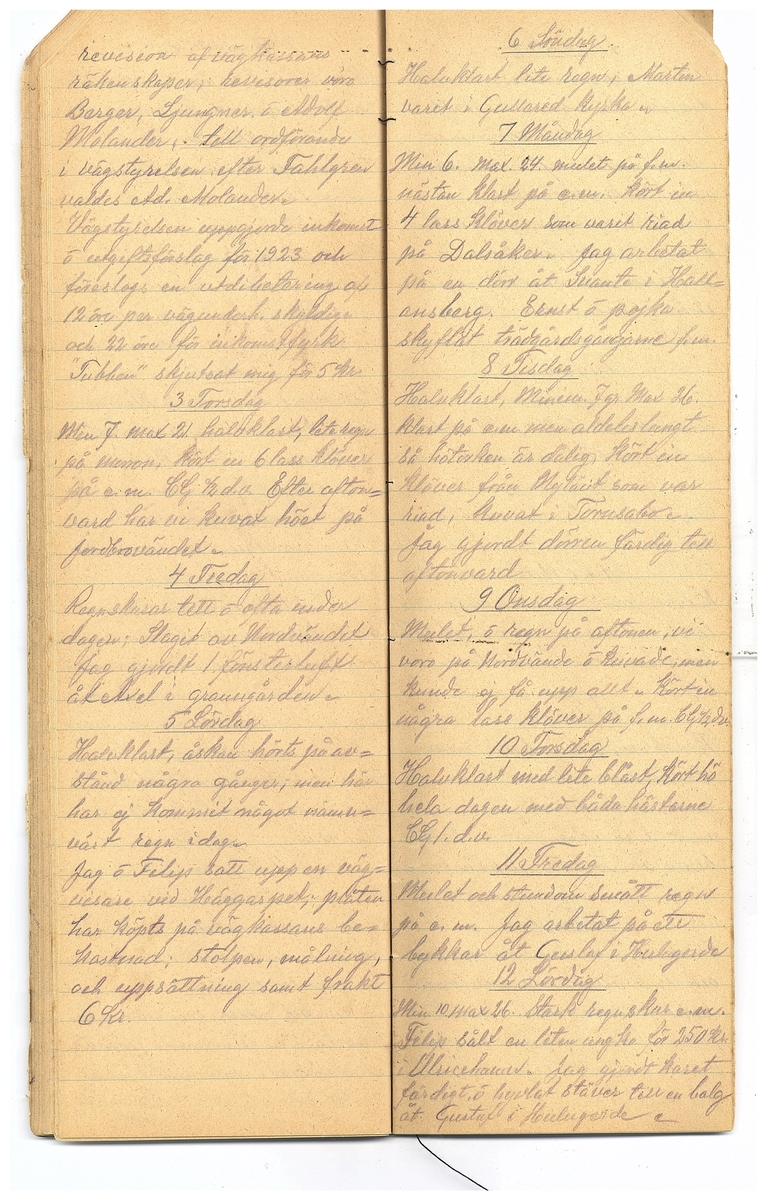 revision af vägkassans
räkenskaper; revisorer voro
Berger, Ljungner o Adolf
Molander. till ordförande
i vägstyrelsen efter Fahlgren
valdes Ad. Molander.
Vägstyrelsen uppgjorde inkomst
o utgiftsförslag för 1923 och
föreslogs en utdebitering af
12 öre per vägunderh. skyldige
och 22 öre för inkomstfyrk
"Tubben" skjutsat mig för 5 kr
3 Torsdag
Min 7. max 21. halvklart, lite regn
på morron, Kört en 6 lass klöver
på e.m. Clg ½ d.v. Efter afton=
vard har vi kuvat höet på
jordbrovändet.
4 Fredag
Regnskurar tätt o ofta under
dagen; Slaget av Nordvändet
Jag gjordt 1 fönsterluft
åt Axel i granngården.
5 Lördag
Halvklart, åskan hörts på av=
stånd några gånger, men här
har ej kommit något nämn=
värt regn idag.
Jag o Felip satt upp en väg=
visare ved Häggarpet; plåten
har köpts på vägkassans be=
kostnad; stolpen, målning,
och uppsättning samt frakt
6 kr.
6 Söndag
Halvklart lite regn; Martin
varit i Gullered kyrka
7 Måndag
Min 6. max. 24. mulet på f.m.
nästan klart på e.m. Kört in
4 lass klöver som varit riad
på Dalsåker. Jag arbetat
på en dörr åt Svante i Hall=
ansberg. Ernst o pojka
skyflat trädgårdsgångarne f.m.
8 Tisdag
Halvklart, Minem. 7 gr. Max 26.
klart på e.m men aldeles lungt
så hötorken är dålig; Kört in
klöver från Nylänt som var
riad, kuvat i Tornsabo.
Jag gjordt dörren färdig till
aftonvard
9 Onsdag
Mulet, o regn på aftonen, vi
voro på Nordvände o kuvade, men
kunde ej få upp allt. Kört in
några lass klöver på f.m. Clg ½ dv
10 Torsdag
Halvklart med lite blåst, Kört hö
hela dagen med båda hästarne
Clg 1. d.v.
11 Fredag
Mulet och stundom smått regn
på e.m. Jag arbetat på ett
bykkar åt Gustaf i Hulugerde
12 Lördag
Min 10. max 26. Stark regnskur e.m.
Felip sålt en liten ung ko för 250 kr
i Ulricehamn. Jag gjordt karet
färdigt o hyvlat stäver till en balg
åt Gustaf i Hulugerde